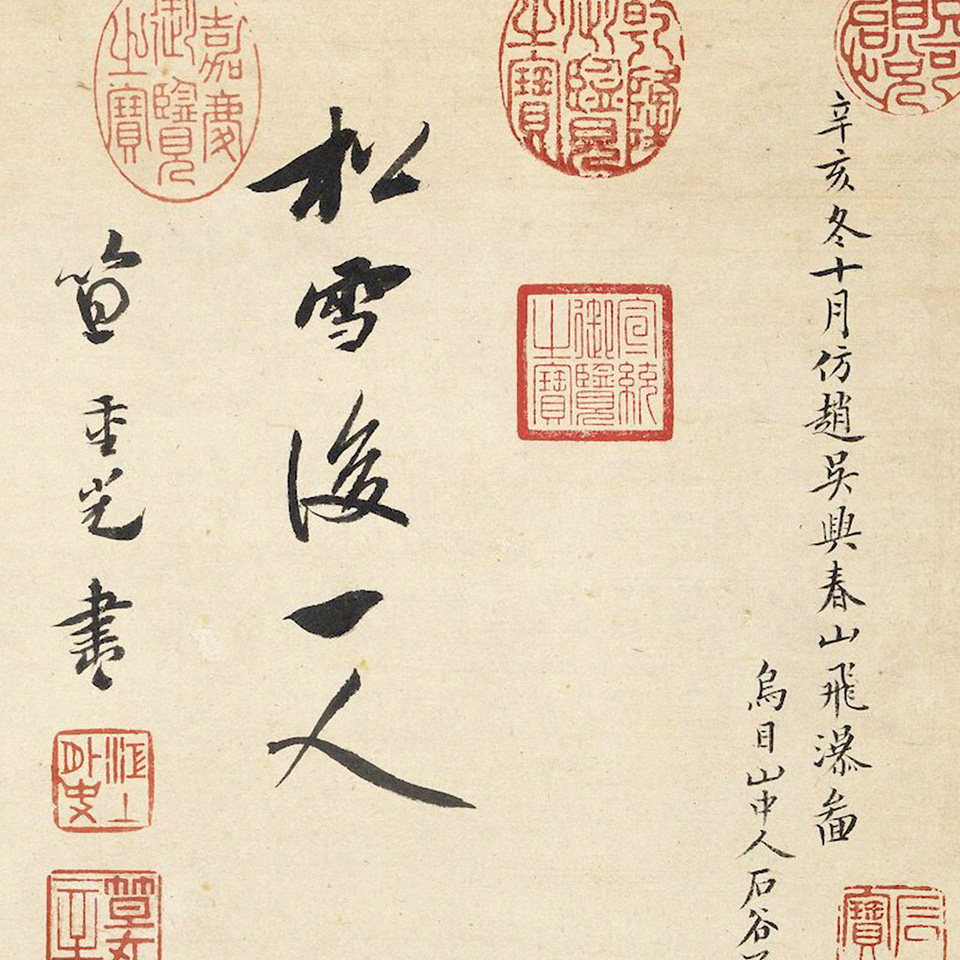 辛亥冬十月仿趙吳興春山飛瀑圖
烏目山中人石谷
乾隆御覽之寶
宣統御覽之寶
松雪後一人
嘉慶御覽之寶
笪重光書
江上外史